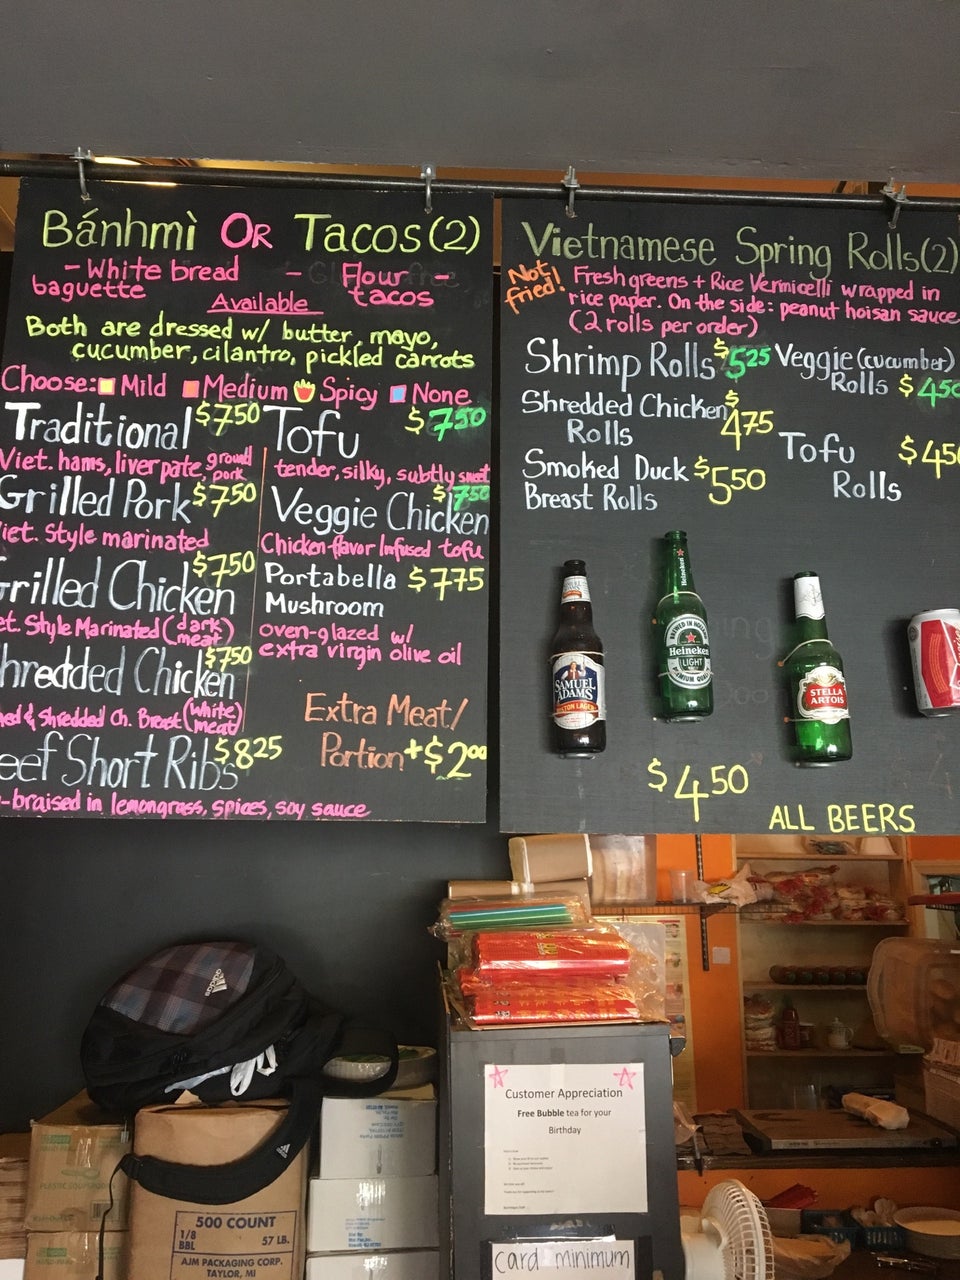 Bánhmì OR Tacos(2)
- White bread baguette - Flour tacos -
Available
Both are dressed w/ butter, mayo,
cucumber, cilantro, pickled carrots
Choose: Mild Medium Spicy None
Traditional $7.50
Viet. hams, liver pate, ground pork
Grilled Pork $7.50
iet. Style marinated
rilled Chicken $7.50
et. Style Marinated (dark meat)
hredded Chicken $7.50
hed & Shredded Ch. Breast (white meat)
eef Short Ribs $8.25
-braised in lemongrass, spices, soy sauce
Tofu $7.50
tender, silky, subtly sweet
Veggie Chicken $7.50
Chicken-flavor Infused tofu
Portabella Mushroom $7.75
oven-glazed w/
extra virgin olive oil
Extra Meat/
Portion +$2.00
Vietnamese Spring Rolls(2)
Not fried!
Fresh greens + Rice Vermicelli wrapped in
rice paper. On the side: peanut hoisan sauce
(2 rolls per order)
Shrimp Rolls $5.25
Shredded Chicken Rolls $4.75
Smoked Duck Breast Rolls $5.50
Veggie (cucumber) Rolls $4.50
Tofu Rolls $4.50
SAMUEL
ADAMS
BOSTON LAGER
Heineken
BREWED IN HOLLAND
Heineken
LIGHT
PREMIUM
STELLA
ARTOIS
$4.50
ALL BEERS
adidas
Customer Appreciation
Free Bubble tea for your
Birthday
card minimum
500 COUNT
1/8
BBL
57 LB.
AJM PACKAGING CORP.
TAYLOR, MI
adidas